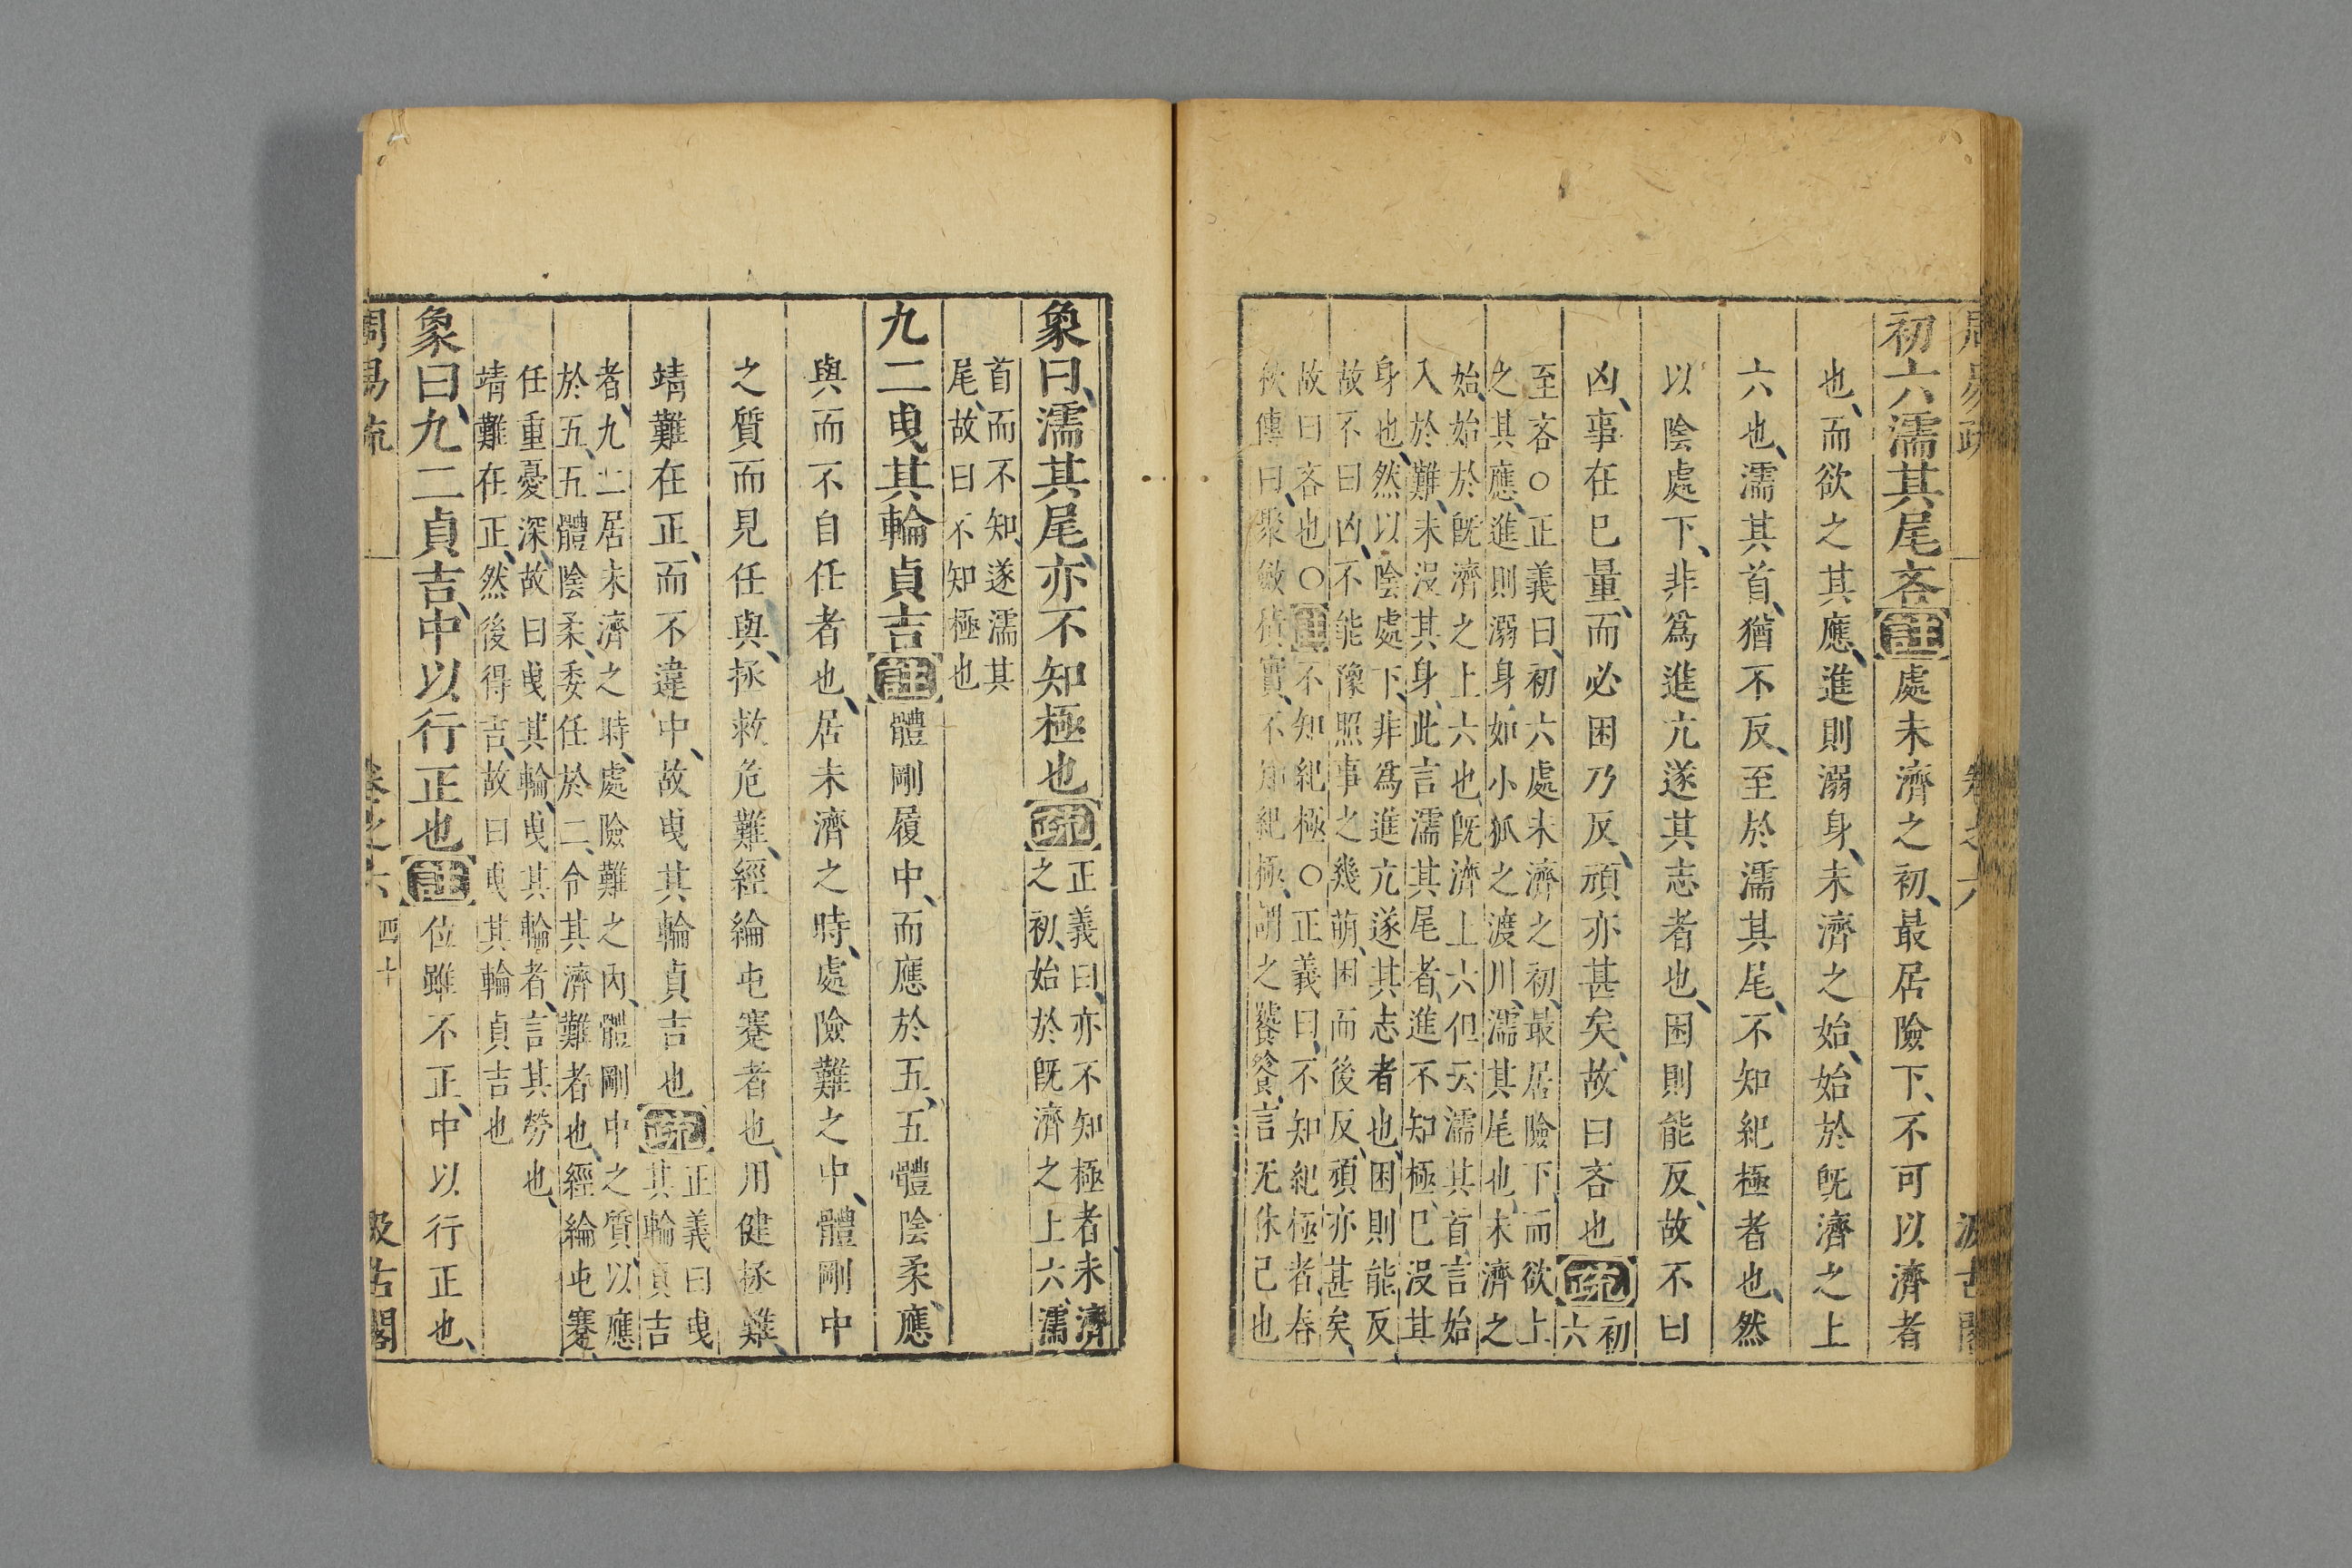 周易疏 卷之六 汲古閣
初六濡其尾吝註處未濟之初、最居險下、不可以濟者
也、而欲之其應、進則溺身、未濟之始、始於既濟之上
六也、濡其首、猶不反、至於濡其尾、不知紀極者也、然
以陰處下、非爲進亢遂其志者也、困則能反、故不曰
凶、事在已量、而必困乃反、頑亦甚矣、故曰吝也疏初六
至吝○正義曰、初六處未濟之初、最居險下、而欲上
之其應、進則溺身、如小狐之渡川、濡其尾也、未濟之
始、始於既濟之上六也、既濟上六但云濡其首、言始
入於難、未沒其身、此言濡其尾者、進不知極、已沒其
身也、然以陰處下、非爲進亢遂其志者也、困則能反
故不曰凶、不能豫照事之幾萌、困而後反、頑亦甚矣、
故曰吝也○註不知紀極○正義曰、不知紀極者、春
秋傳曰、聚斂積實、不知紀極、謂之饕餮、言无休已也
象曰、濡其尾、亦不知極也疏正義曰、亦不知極者、未濟
之初、始於既濟之上六、濡
首而不知、遂濡其
尾、故曰不知極也
九二曳其輪貞吉註體剛履中、而應於五、五體陰柔、應
與而不自任者也、居未濟之時、處險難之中、體剛中
之質而見任與、拯救危難、經綸屯蹇者也、用健拯難、
靖難在正、而不違中、故曳其輪貞吉也疏正義曰曳
其輪貞吉
者、九二居未濟之時、處險難之內、體剛中之質、以應
於五、五體陰柔、委任於二、令其濟難者也、經綸屯蹇、
任重憂深、故曰曳其輪、曳其輪者、言其勞也、
靖難在正、然後得吉、故曰曳其輪貞吉也
象曰、九二貞吉、中以行正也註位雖不正、中以行正也、
周易疏 卷之六 四十 汲古閣